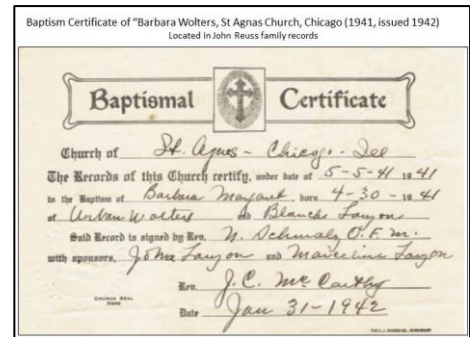 Baptism Certificate of "Barbara Wolters, St Agnas Church, Chicago (1941, issued 1942)
Located in John Reuss family records
Baptismal Certificate
Church of St. Agnes - Chicago - Ill
The Records of this Church certify, under date of 5-5-41 1941
to the Baptism of Barbara Margaret, born 4-30-1941
of Urban Wolters and Blanche Lanyon
Said Record is signed by Rev. N. Schmalz O.F.M.
with sponsors, John Lanyon and Marceline Lanyon
Rev. J.C. McCarthy
CHURCH SEAL
HERE
Date Jan 31-1942